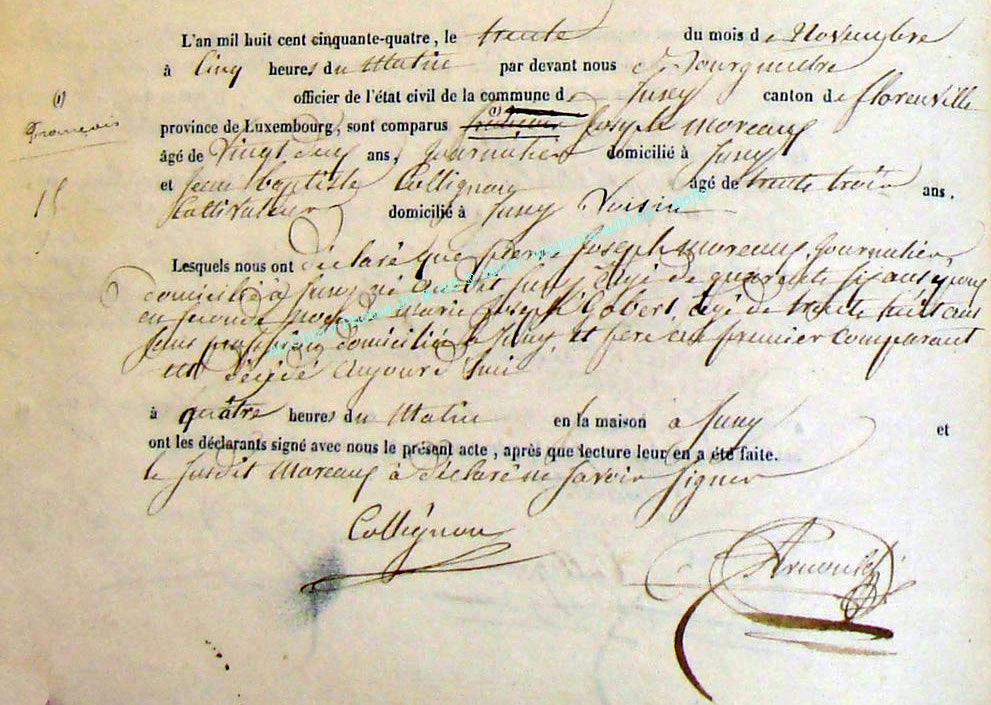 L'an mil huit cent cinquante-quatre, le trente du mois de Novembre
à Cinq heures du Matin par devant nous Bourgmestre
officier de l'état civil de la commune de Jusey canton de florenville
(1)
françois
province de Luxembourg, sont comparus (1) Joseph Moreaux
âgé de Vingt deux ans, Journalier domicilié à Jusey
15
et Jean Baptiste Collignon âgé de trente trois ans.
Cultivateur domicilié à Jusey Voisin
Lesquels nous ont déclaré que pierre Joseph Moreaux, Journalier,
domicilié à Jusey né audit Jusey âgé de quarante six ans époux
en seconde noces de Marie Joseph Gobert, âgé de trente huit ans
sans profession domiciliée à Jusey, et père au premier Comparant
est décédé aujourd'hui
à quâtre heures du Matin en la maison à Jusey et
ont les déclarants signé avec nous le présent acte, après que lecture leur en a été faite.
le susdit Moreaux à déclaré ne savoir signer
Collignon
Arnould